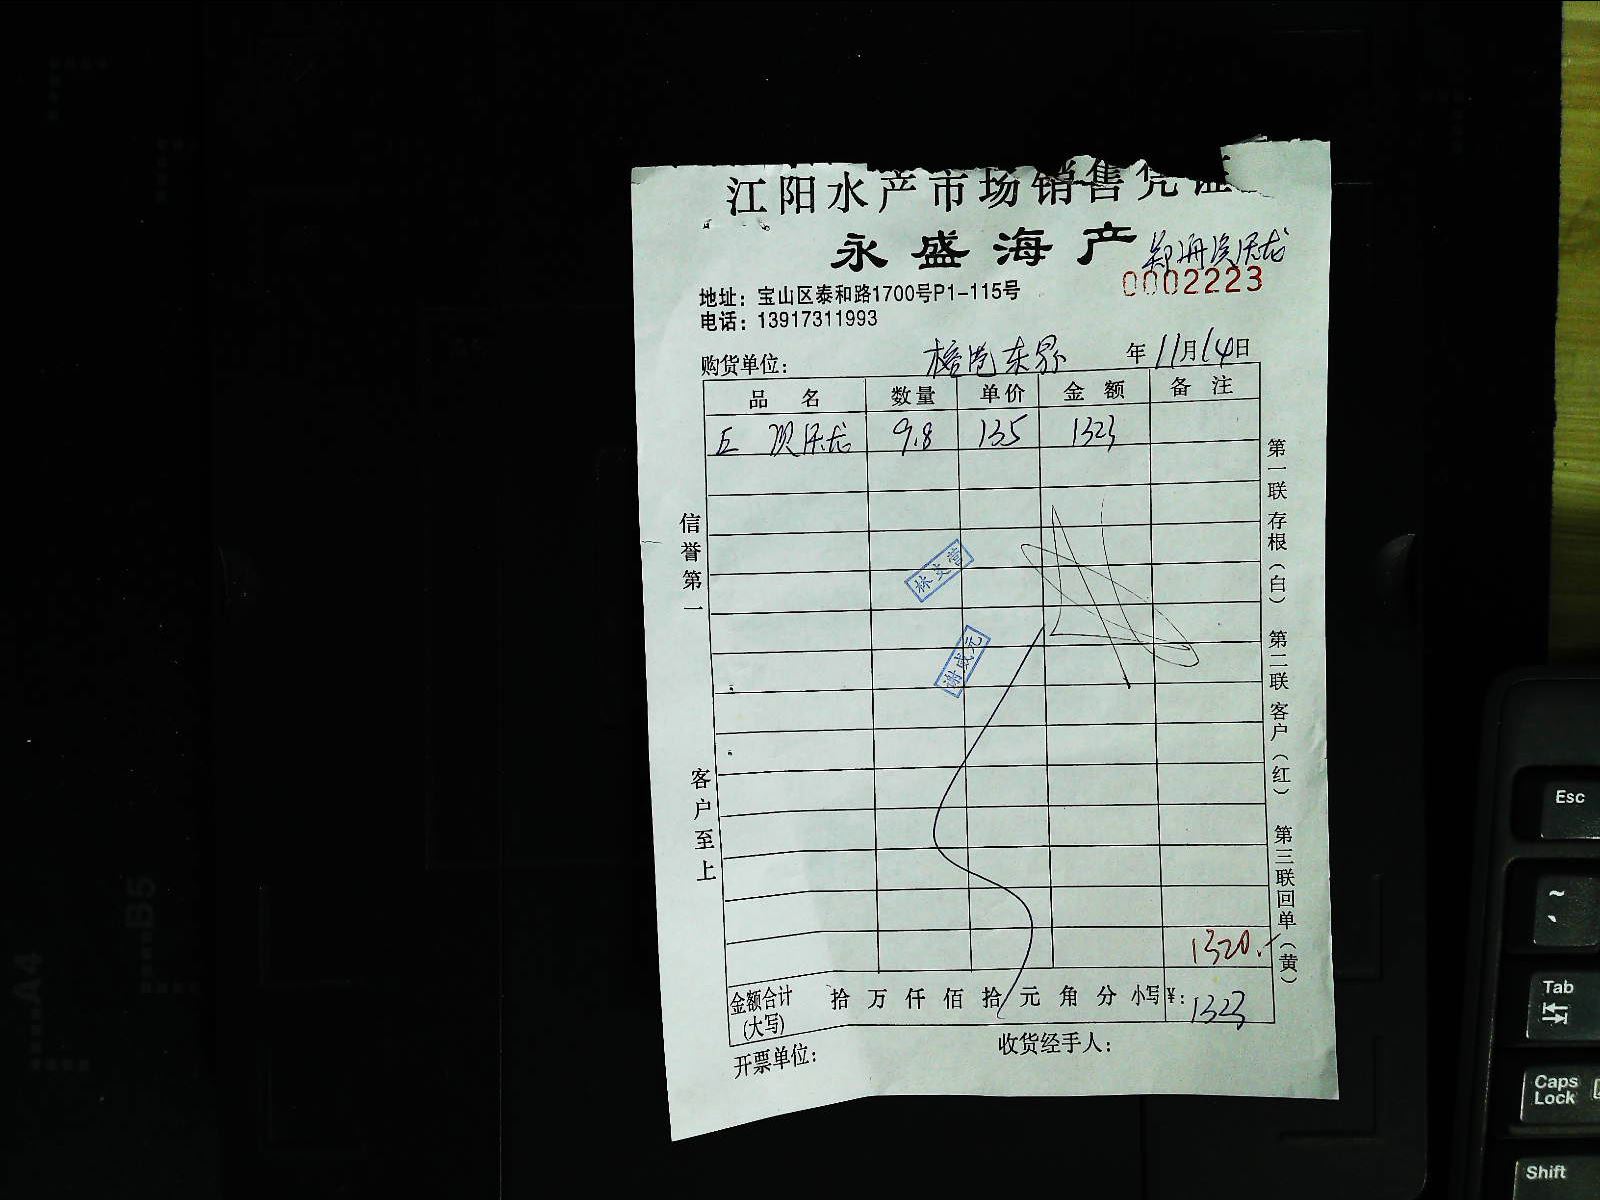 江阳水产市场销售凭证
永盛海产
0002223
地址：宝山区泰和路1700号P1-115号
电话：13917311993
购货单位： 年 11月14日
品名 数量 单价 金额 备注
9.8 135 1323
信誉第一
客户至上
第一联存根（白） 第二联客户（红） 第三联回单（黄）
林文营
谢成元
1320.-
金额合计(大写) 拾 万 仟 佰 拾 元 角 分 小写¥: 1323
开票单位： 收货经手人：
A4
B5
Esc
~
Tab
Caps Lock
Shift